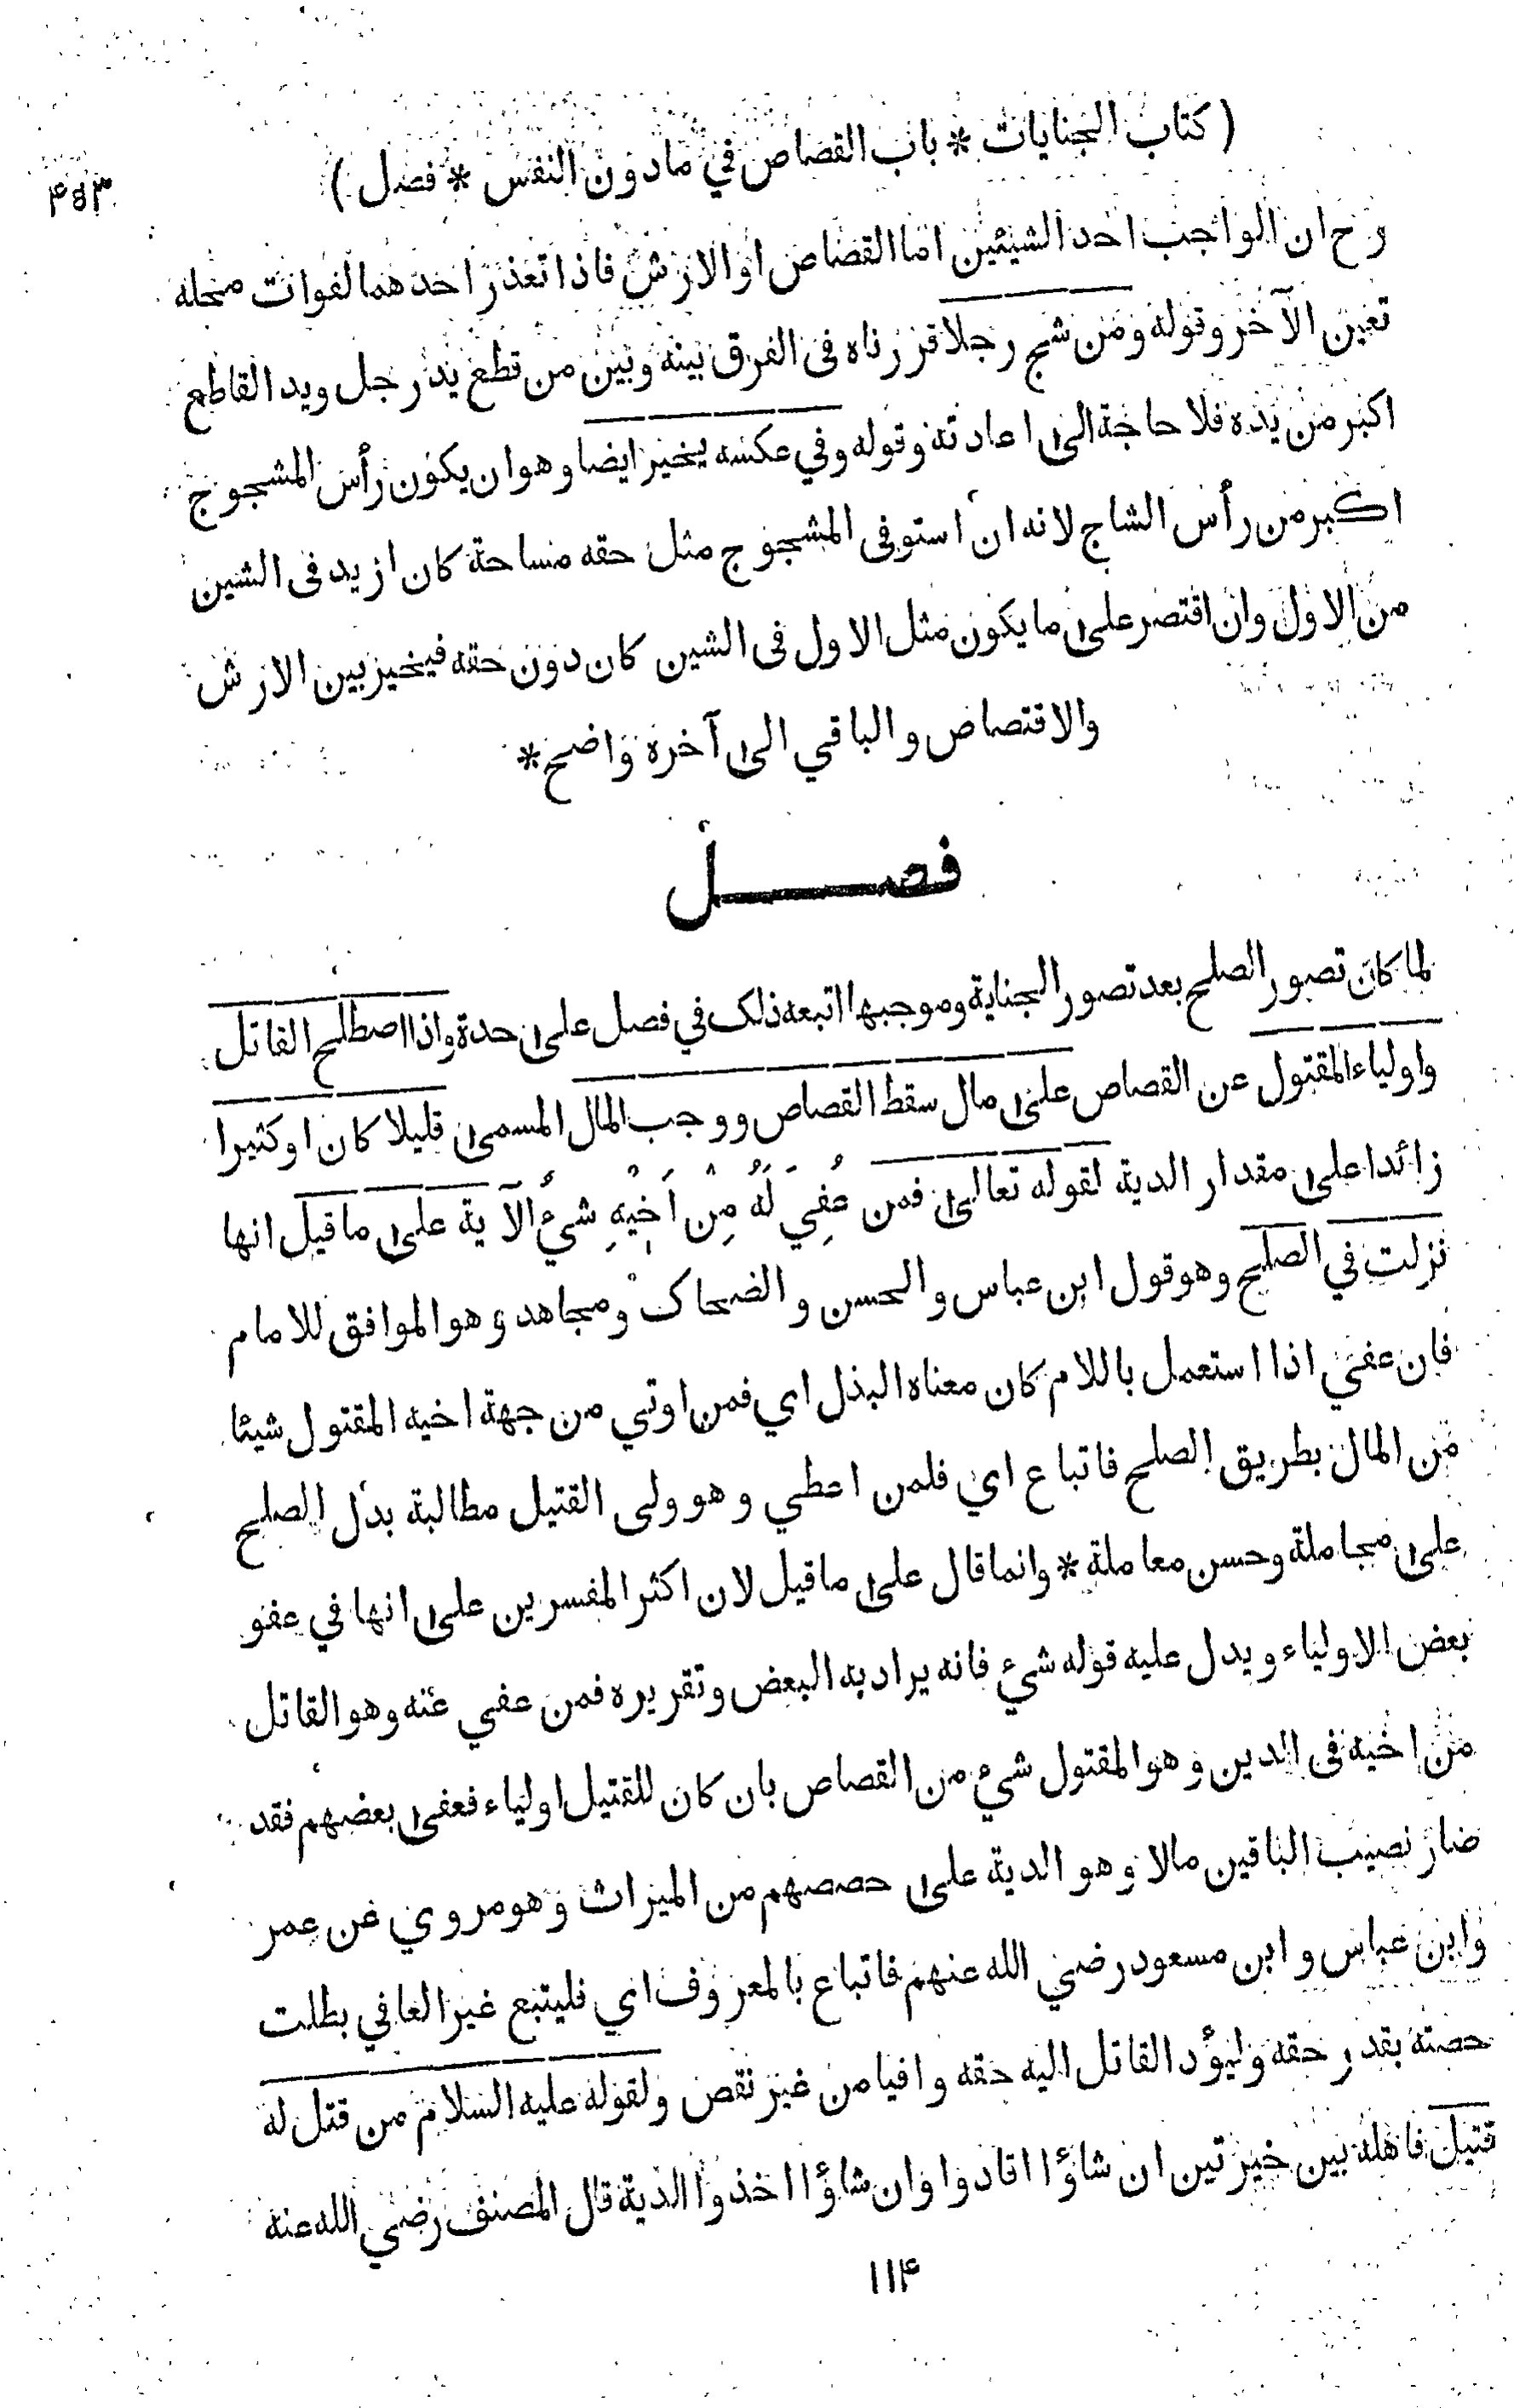 ( كتاب الجنايات * باب القصاص في مادون النفس * فصل )
۴۵۳
وح ان الواجب احد الشيئين اما القصاص او الارش فاذا تعذر احدهما لفوات محله
تعين الآخر وقوله ومن شج رجلا قررناه فى الفرق بينه وبين من قطع يد رجل ويد القاطع
اكبر من يده فلا حاجة الى اعادته وقوله وفي عكسه يخير ايضا وهو ان يكون رأس المشجوج
اكبر من رأس الشاج لانه ان استوفى المشجوج مثل حقه مساحة كان ازيد فى الشين
من الاول وان اقتصر على ما يكون مثل الاول فى الشين كان دون حقه فيخير بين الارش
والاقتصاص والباقي الى آخره واضح *
فصـــل
لما كان تصور الصلح بعد تصور الجناية وموجبها اتبعه ذلك في فصل على حدة واذا اصطلح القاتل
واولياء المقتول عن القصاص على مال سقط القصاص ووجب المال المسمى قليلا كان اوكثيرا
زائدا على مقدار الدية لقوله تعالى فمن عُفِيَ لَهُ مِنْ اَخِيْهِ شيءٌ الآية على ما قيل انها
نزلت في الصلح وهو قول ابن عباس والحسن والضحاك ومجاهد وهو الموافق للامام
فان عفي اذا استعمل باللام كان معناه البذل اي فمن اوتي من جهة اخيه المقتول شيئا
من المال بطريق الصلح فاتباع اي فلمن اعطي وهو ولى القتيل مطالبة بدل الصلح
على مجاملة وحسن معاملة * وانما قال على ما قيل لان اكثر المفسرين على انها في عفو
بعض الاولياء ويدل عليه قوله شيء فانه يراد به البعض وتقريره فمن عفي عنه وهو القاتل
من اخيه فى الدين وهو المقتول شيء من القصاص بان كان للقتيل اولياء فعفى بعضهم فقد
صار نصيب الباقين مالا وهو الدية على حصصهم من الميراث وهو مروي عن عمر
وابن عباس وابن مسعود رضي الله عنهم فاتباع بالمعروف اي فليتبع غير العافي بطلت
حصته بقدر حقه وليؤد القاتل اليه حقه وافيا من غير نقص ولقوله عليه السلام من قتل له
قتيل فاهله بين خيرتين ان شاؤا اقادوا وان شاؤا اخذوا الدية قال المصنف رضي الله عنه
۱۱۴